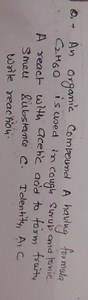 Q.- An Organic Compound A having formula
C₂H₆O is used in cough syrup and tonic
A react with acetic acid to form fruity
Smell Substance C. Identify, A, C
Write reaction.